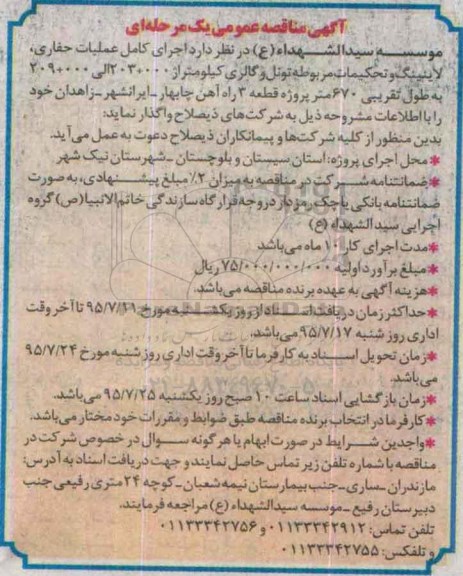 آگهی مناقصه عمومی یک مرحله‌ای
موسسه سیدالشهداء(ع) در نظر دارد اجرای کامل عملیات حفاری،
لاینینگ و تحکیمات مربوطه تونل و گالری کیلومتر از ۲۰۳+۰۰۰ الی ۲۰۹+۰۰۰
به طول تقریبی ۶۷۰ متر پروژه قطعه ۳ راه آهن چابهار-ایرانشهر-زاهدان خود
را با اطلاعات مشروحه ذیل به شرکت‌های ذیصلاح واگذار نماید:
بدین منظور از کلیه شرکت‌ها و پیمانکاران ذیصلاح دعوت به عمل می‌آید.
*محل اجرای پروژه: استان سیستان و بلوچستان - شهرستان نیک شهر
*ضمانتنامه شرکت در مناقصه به میزان ۲٪ مبلغ پیشنهادی، به صورت
ضمانتنامه بانکی یا چک رمزدار در وجه قرارگاه سازندگی خاتم‌الانبیا(ص) گروه
اجرایی سیدالشهداء (ع)
*مدت اجرای کار ۱۰ ماه می‌باشد
*مبلغ برآورد اولیه ۷۵/۰۰۰/۰۰۰/۰۰۰ ریال
*هزینه آگهی به عهده برنده مناقصه می‌باشد.
*حداکثر زمان دریافت اسناد از روز یکشنبه مورخ ۹۵/۷/۱۱ تا آخر وقت
اداری روز شنبه ۹۵/۷/۱۷ می‌باشد.
*زمان تحویل اسناد به کارفرما تا آخر وقت اداری روز شنبه مورخ ۹۵/۷/۲۴
می‌باشد.
*زمان بازگشایی اسناد ساعت ۱۰ صبح روز یکشنبه ۹۵/۷/۲۵ می‌باشد.
*کارفرما در انتخاب برنده مناقصه طبق ضوابط و مقررات خود مختار می‌باشد.
*واجدین شرایط در صورت ابهام یا هرگونه سوال در خصوص شرکت در
مناقصه با شماره تلفن زیر تماس حاصل نمایند و جهت دریافت اسناد به آدرس:
مازندران-ساری-جنب بیمارستان نیمه شعبان-کوچه ۲۴ متری رفیعی جنب
دبیرستان رفیع-موسسه سیدالشهداء (ع) مراجعه فرمایند.
تلفن تماس: ۰۱۱۳۳۳۴۲۹۱۲ و ۰۱۱۳۳۳۴۲۷۵۶
و تلفکس: ۰۱۱۳۳۳۴۲۷۵۵